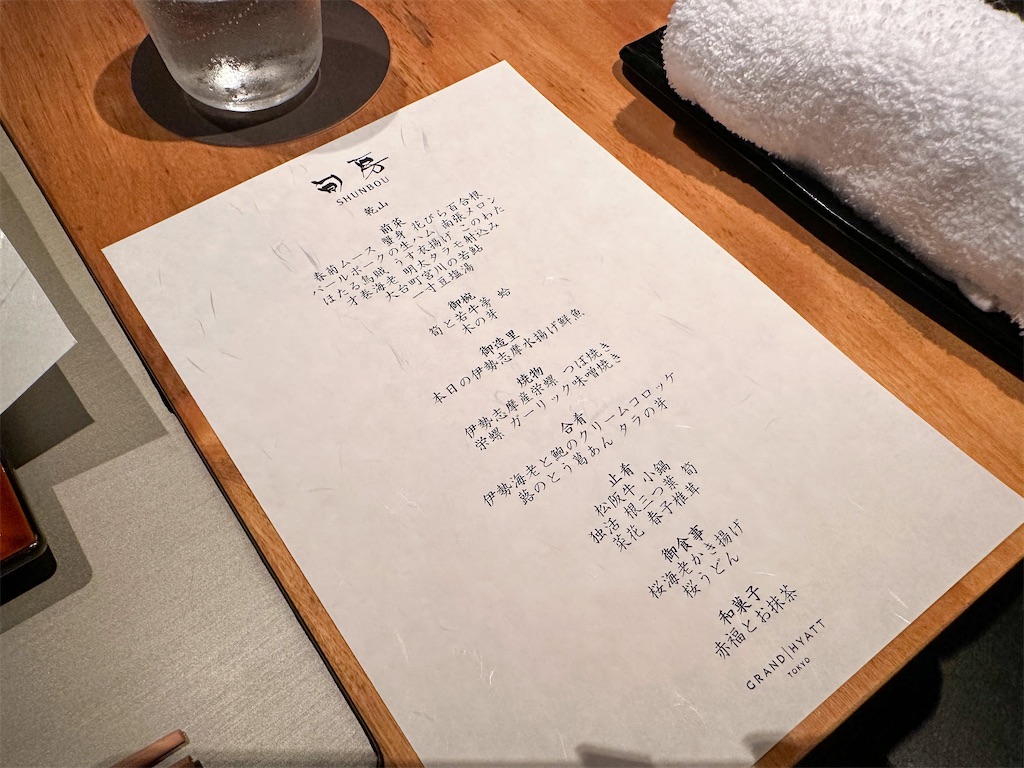 旬房
SHUNBOU
乾山
前菜
蟹身 花びら百合根
春菊ムース
パールポニックの生ハム 南張メロン
ほたる烏賊 うす衣揚げ このわた
才巻海老 明太タラモ射込み
大台町宮川の若鮎
一寸豆塩湯
御椀
筍と若牛蒡 蛤
木の芽
御造里
本日の伊勢志摩水揚げ鮮魚
焼物
伊勢志摩産栄螺 つぼ焼き
栄螺 ガーリック味噌焼き
合肴
伊勢海老と鮑のクリームコロッケ
蕗のとう葛あん タラの芽
止肴
松阪牛 小鍋
独活 根三つ葉 筍
菜花 春子椎茸
御食事
桜海老かき揚げ
桜うどん
和菓子
赤福とお抹茶
GRAND|HYATT
TOKYO